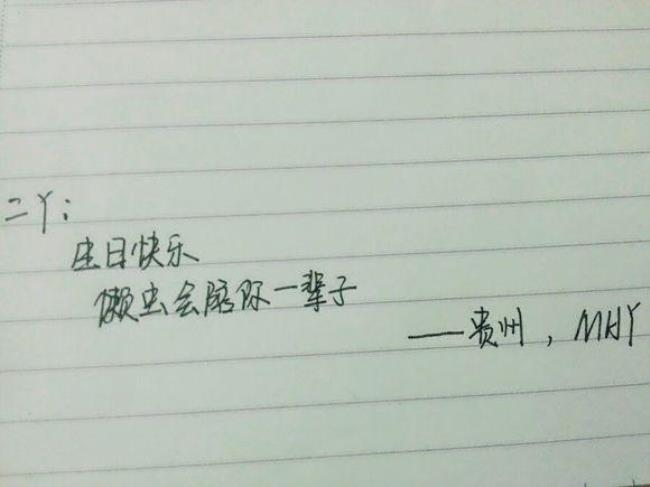 二丫：
生日快乐
懒虫会陪你一辈子
——贵州，MHY